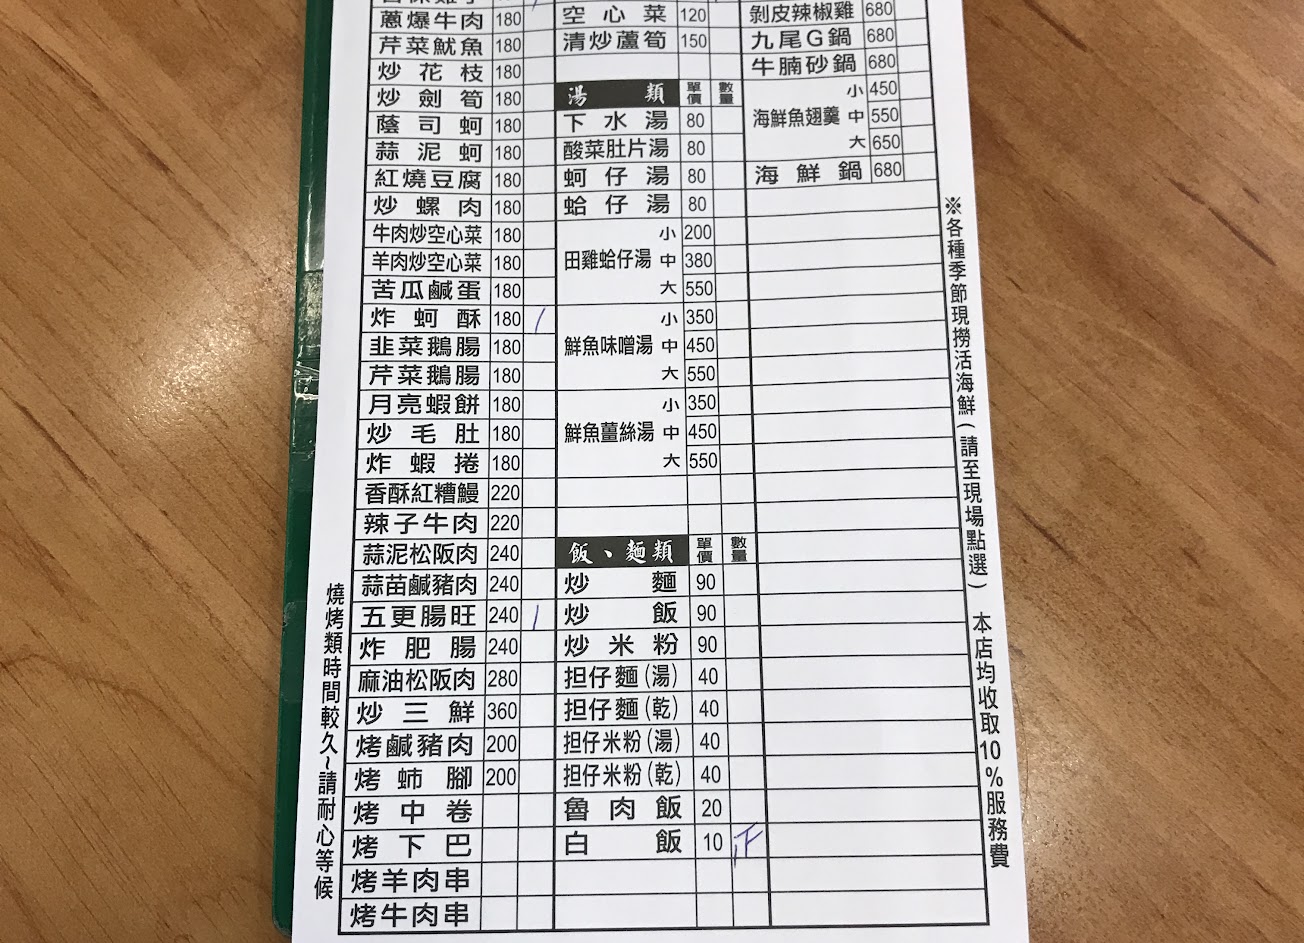 蔥爆牛肉 180
芹菜魷魚 180
炒花枝 180
炒劍筍 180
蔭司蚵 180
蒜泥蚵 180
紅燒豆腐 180
炒螺肉 180
牛肉炒空心菜 180
羊肉炒空心菜 180
苦瓜鹹蛋 180
炸蚵酥 180 /
韭菜鵝腸 180
芹菜鵝腸 180
月亮蝦餅 180
炒毛肚 180
炸蝦捲 180
香酥紅糟鰻 220
辣子牛肉 220
蒜泥松阪肉 240
蒜苗鹹豬肉 240
五更腸旺 240 /
炸肥腸 240
麻油松阪肉 280
炒三鮮 360
烤鹹豬肉 200
烤蛳腳 200
烤中卷
烤下巴
烤羊肉串
烤牛肉串
空心菜 120
清炒蘆筍 150
湯類 單價 數量
下水湯 80
酸菜肚片湯 80
蚵仔湯 80
蛤仔湯 80
田雞蛤仔湯 小 200
中 380
大 550
鮮魚味噌湯 小 350
中 450
大 550
鮮魚薑絲湯 小 350
中 450
大 550
飯、麵類 單價 數量
炒麵 90
炒飯 90
炒米粉 90
担仔麵(湯) 40
担仔麵(乾) 40
担仔米粉(湯) 40
担仔米粉(乾) 40
魯肉飯 20
白飯 10 正
剝皮辣椒雞 680
九尾G鍋 680
牛腩砂鍋 680
海鮮魚翅羹 小 450
中 550
大 650
海鮮鍋 680
※各種季節現撈活海鮮(請至現場點選) 本店均收取10%服務費
燒烤類時間較久~請耐心等候